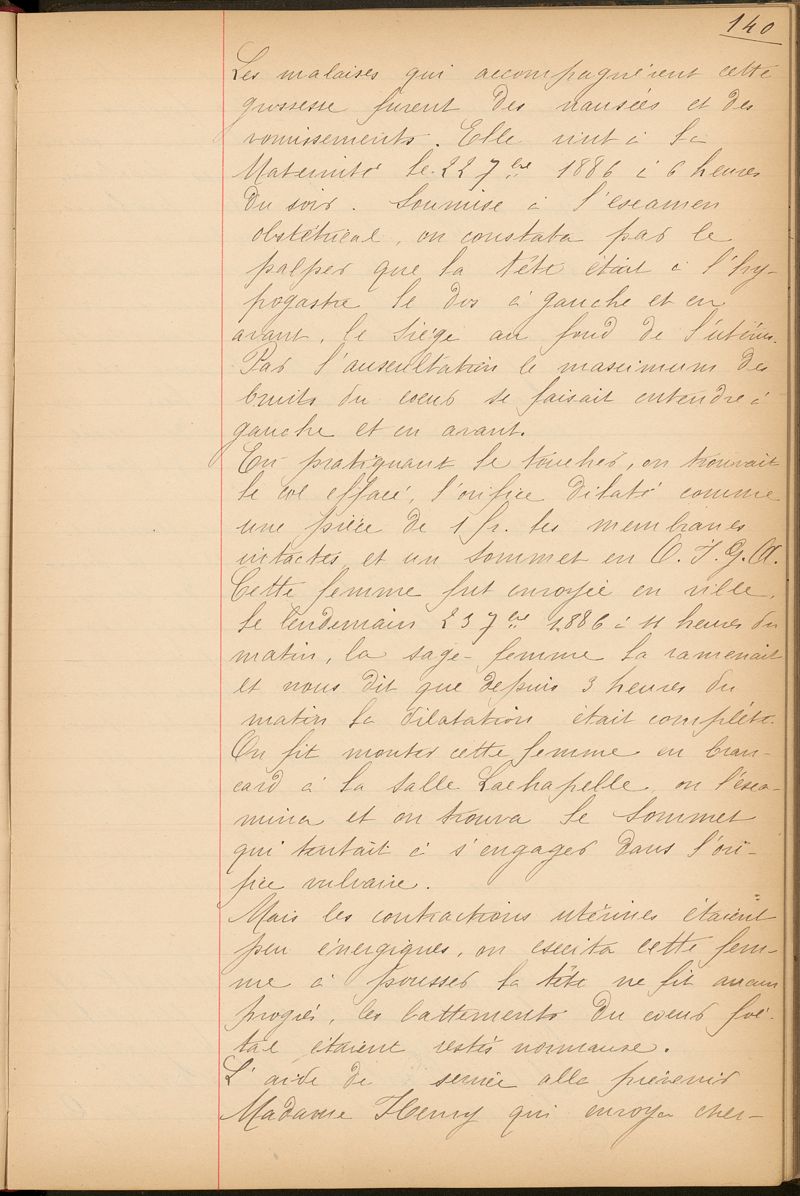 140
Les malaises qui accompagnèrent cette
grossesse furent des nausées et des
vomissements. Elle vint à la
Maternité le 22 7bre 1886 à 6 heures
du soir. Soumise à l'examen
obstétrical, on constata par le
palper que la tête était à l'hy-
pogastre le dos à gauche et en
avant, le siège au fond de l'utérus.
Par l'auscultation le maximum des
bruits du cœur se faisait entendre à
gauche et en avant.
En pratiquant le toucher, on trouvait
le col effacé, l'orifice dilaté comme
une pièce de 1 fr. les membranes
intactes et un sommet en O. I. G. A.
Cette femme fut envoyée en ville,
le lendemain 23 7bre 1886 à 11 heures du
matin, la sage-femme la ramenait
et nous dit que depuis 3 heures du
matin la dilatation était complète.
On fit monter cette femme en bran-
card à la salle Lachapelle, on l'exa-
mina et on trouva le sommet
qui tentait à s'engager dans l'ori-
fice vulvaire.
Mais les contractions utérines étaient
peu énergiques, on excita cette fem-
me à pousser la tête ne fit aucun
progrès, les battements du cœur fœ-
tal étaient restés normaux.
L'aide de service alla prévenir
Madame Henry qui envoya cher-